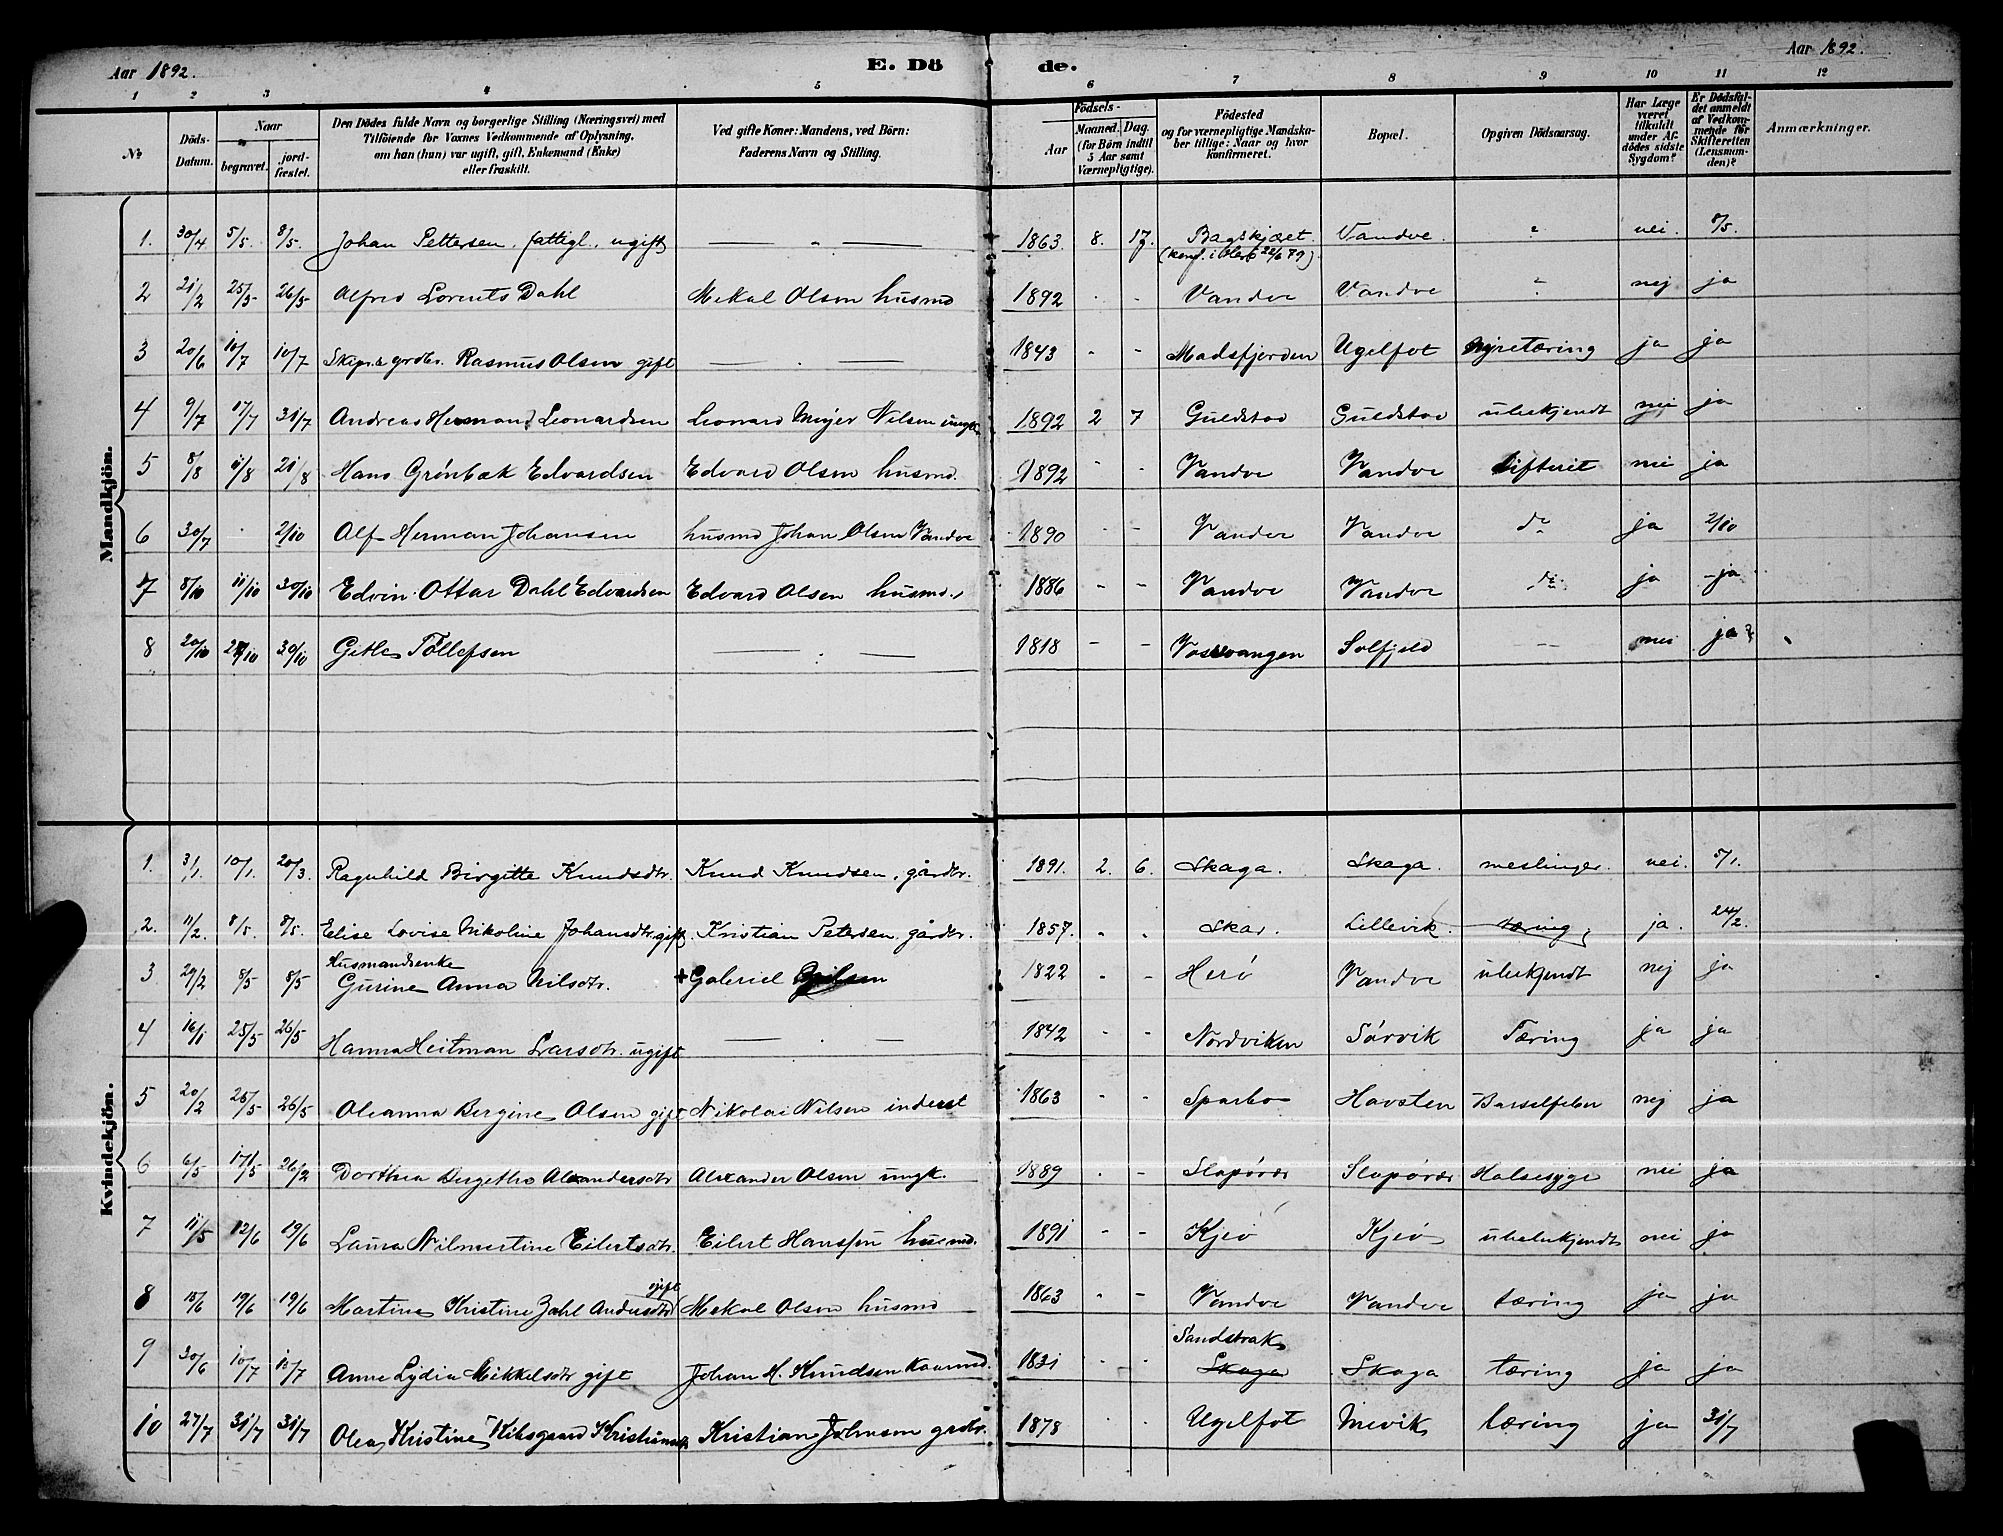 Aar 1892. E. Dö de. Aar 1892.
1 2 3 4 5 6 7 8 9 10 11 12
№ Döds-Datum. Naar begravet. jord-fæstet. Den Dödes fulde Navn og borgerlige Stilling (Næringsvei) med Tilföiende for Voxnes Vedkommende af Oplysning, om han (hun) var ugift, gift, Enkemand (Enke) eller fraskilt. Ved gifte Koner: Mandens, ved Börn: Faderens Navn og Stilling. Födsels- Aar Maaned. Dag. (for Börn indtil 5 Aar samt Værnepligtige). Födested og for værnepligtige Mandskaber tillige: Naar og hvor konfirmeret. Bopæl. Opgiven Dödsaarsag. Har Læge været tilkaldt under Afdödes sidste Sygdom? Er Dödsfaldet anmeldt af Vedkommende for Skifteretten (Lensmanden)? Anmærkninger.
Mandkjön.
1. 30/4 5/5. 8/5. Johan Pettersen, fattigl., ugift — „ — 1863 8. 17. Bagskjæret. Vandve. „ nei. 8/5.
(konf. i Herö 22/6 79).
2 21/2 25/5 26/5 Alfred Lorents Dahl Mekal Olsen husmd 1892 - - Vandve Vandve „ nej ja
3 20/6 10/7 10/7 Skip. & grdbr. Rasmus Olsen gift — . — 1843 - - Madsfjorden Ugelfot Nyretæring ja ja
4 9/7 17/7 31/7 Andreas Herman Leonardsen Leonard Meyer Nilsen ungk 1892 2 7 Guldstad Guldstad ubekjendt nei ja
5 8/8 11/8 21/8 Hans Grönbæk Edvardsen Edvard Olsen husmd. 1892 - - Vandve Vandve difterit nei ja
6 30/7 . 2/10 Alf Herman Johansen husmd Johan Olsen Vandve 1890 - - Vandve Vandve do ja 2/10
7 8/10 11/10 30/10 Edvin Ottar Dahl Edvardsen Edvard Olsen husmd. 1886 - - Vandve Vandve do ja - ja
8 20/10 27/10 30/10 Gitle Tollefsen — : — 1818 - - Vossevangen Solfjeld -- nei ja?
Kvindekjön.
1. 3/1. 10/1. 20/3. Ragnhild Birgitte Knudsdtr. Knud Knudsen, gårdbr. 1891. 2. 6. Skaga. Skaga. meslinger. nei. 5/1.
2. 11/2. 8/5. 8/5. Elise Lovise Nikoline Johansdtr. gift. Kristian Petersen gårdbr. 1857. . . Skar. Lillevik. tæring, ja. 24/2.
Husmandsenke
3 29/2 8/5 8/5 Gurine Anna Nilsdtr. + Gabriel 1822 - - Herö Vandve ubekjendt nej ja
4 16/1 25/5 26/5 Hanna Heitman Larsdtr. ugift — . — 1842 - - Nordviken Sörvik Tæring ja ja
5 20/2 25/5 26/5 Oleanna Bergine Olsen gift Nikolai Nilsen inderst 1863 - - Sparbo Havsten Barselfeber nej ja
6 6/5 17/5 26/2 Dorthea Bergethe Alexandersdtr Alexander Olsen ungk. 1889 . - Slapören Slapören Halsesyge nei ja
7 11/5 12/6 19/6 Laura Nilmartine Eilertsdtr. Eilert Hanssen husmd. 1891 - - Kjeö Kjeö ubekjendt nei ja
gift
8 15/6 19/6 19/6 Martine Kristine Zahl Andersdtr Mekal Olsen husmd 1863 - - Vandve Vandve tæring ja ja
Sandstrak
9 30/6 10/7 10/7 Anne Lydia Mikkelsdtr gift Johan H. Knudsen kaarmd. 1821 - - Skaga Skaga tæring ja ja
10 27/7 31/7 31/7 Olea Kristine Kibsgaard Kristiansdtr Kristian Johnsen grdbr. 1878 . . Ugelfot Mevik tæring ja 31/7